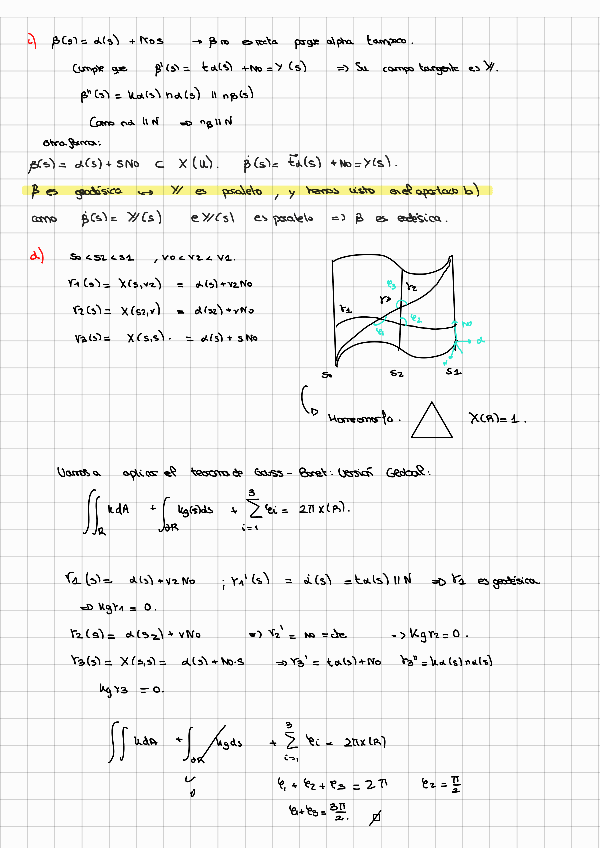 c) β(s) = α(s) + N0 s → β no es recta porque alpha tampoco.
Cumple que β'(s) = tα(s) + N0 = Y(s) ⇒ Su campo tangente es Y.
β''(s) = kα(s) nα(s) // nβ(s)
Como nα // N ⇒ nβ // N
otra forma:
β(s) = α(s) + s N0 ⊂ X(U). β̇(s) = tα(s) + N0 = Y(s).
β es geodésica ↔ Y es paralelo, y hemos visto en el apartado b)
como β̇(s) = Y(s) e Y(s) es paralelo ⇒ β es geodésica.
d) s0 < s2 < s1 , v0 < v2 < v1.
r1(s) = X(s,v2) = α(s) + v2 N0
r2(s) = X(s2,v) = α(s2) + v N0
r3(s) = X(s,s). = α(s) + s N0
φ3 r2
r1 r3 φ2
φ1 N0
α
s0 s2 s1
Homeomorfo. X(R) = 1.
Vamos a aplicar el teorema de Gauss-Bonet: Versión Global:
∬_R k dA + ∫_∂R kg(s) ds + Σ_{i=1}^{3} φi = 2π X(R).
r1(s) = α(s) + v2 N0 ; r1'(s) = α̇(s) = tα(s) // N ⇒ r1 es geodésica
⇒ kg r1 = 0.
r2(s) = α(s2) + v N0 ⇒ r2' = N0 = cte → kg r2 = 0.
r3(s) = X(s,s) = α(s) + N0·s ⇒ r3' = tα(s) + N0 r3'' = kα(s) nα(s)
kg r3 = 0.
∬ k dA + ∫_∂R kg ds + Σ_{i=1}^{3} φi = 2π X(R)
0 φ1 + φ2 + φ3 = 2π φ2 = π/2
φ1 + φ3 = 3π/2.